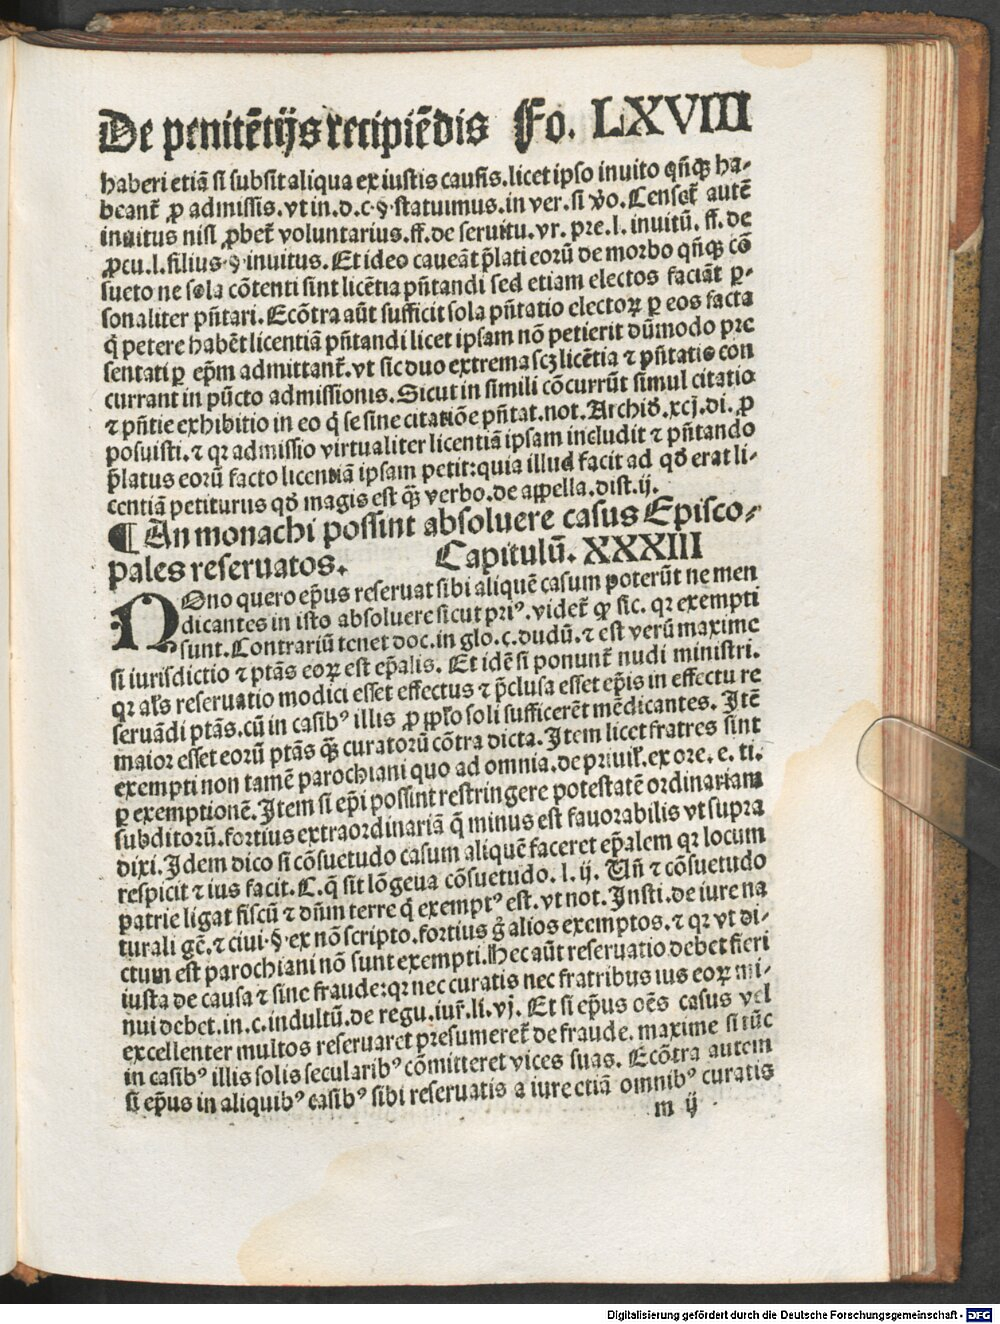 De penitẽtijs recipiẽdis Fo. LXVIII
haberi etiã si subsit aliqua ex iustis causis. licet ipso inuito qñqꝫ ha-
beant᷑ ꝓ admissis. vt in. d. c. §. statuimus. in ver. si v̾o. Censet᷑ autẽ
inuitus nisi ꝓbet᷑ voluntarius. ff. de seruitu. vr. pre. l. inuitũ. ff. de
ꝓcu. l. filius. §. inuitus. Et ideo caueãt p̃lati eorũ de morbo qñqꝫ cõ
sueto ne sola cõtenti sint licẽtia pñtandi sed etiam electos faciãt ꝑ-
sonaliter pñtari. Ecõtra aũt sufficit sola pñtatio electoꝝ ꝑ eos facta
q̃ petere habẽt licentiã pñtandi licet ipsam nõ petierit dũmodo pre
sentati ꝑ ep̃m admittant᷑. vt sic duo extrema scꝫ licẽtia ⁊ pñtatis con
currant in pũcto admissionis. Sicut in simili cõcurrũt simul citatio
⁊ pñtie exhibitio in eo q̃ se sine citatiõe pñtat. not. Archid̃. xcj. di. ꝓ
posuisti. ⁊ qꝛ admissio virtualiter licentiã ipsam includit ⁊ pñtando
p̃latus eorũ facto licentiã ipsam petit: quia illud facit ad qd̃ erat li-
centiã petiturus qd̃ magis est qꝫ̃ verbo. de appella. dist. ij.
¶ An monachi possint absoluere casus Episco-
pales reseruatos. Capitulũ. XXXIII
NOno quero ep̃us reseruat sibi aliquẽ casum poterũt ne men
dicantes in isto absoluere sicut priꝰ. videt᷑ ꝙ sic. qꝛ exempti
sunt. Contrariũ tenet doc. in glo. c. dudũ. ⁊ est verũ maxime
si iurisdictio ⁊ ptãs eoꝝ est ep̃alis. Et idẽ si ponunt᷑ nudi ministri.
qꝛ al̃s reseruatio modici esset effectus ⁊ p̃clusa esset ep̃is in effectu re
seruãdi ptãs. cũ in casibꝰ illis ꝓ ip̃o soli sufficerẽt mẽdicantes. Itẽ
maior esset eorũ ptãs qꝫ̃ curatorũ cõtra dicta. Item licet fratres sint
exempti non tamẽ parochiani quo ad omnia. de priuil̃. ex ore. e. ti.
ꝑ exemptionẽ. Item si ep̃i possint restringere potestatẽ ordinariam
subditorũ. fortius extraordinariã q̃ minus est fauorabilis vt supra
dixi. Idem dico si cõsuetudo casum aliquẽ faceret ep̃alem qꝛ locum
respicit ⁊ ius facit. C. q̃ sit lõgeua cõsuetudo. l. ij. Uñ ⁊ cõsuetudo
patrie ligat fiscũ ⁊ dñm terre q̃ exemptꝰ est. vt not. Insti. de iure na
turali gẽ. ⁊ ciui. §. ex nõ scripto. fortius g̊ alios exemptos. ⁊ qꝛ vt di-
ctum est parochiani nõ sunt exempti. Hec aũt reseruatio debet fieri
iusta de causa ⁊ sine fraude: qꝛ nec curatis nec fratribus ius eoꝝ mi-
nui debet. in. c. indultũ. de regu. iur̃. li. vj. Et si ep̃us oẽs casus vel
excellenter multos reseruaret presumeret᷑ de fraude. maxime si tũc
in casibꝰ illis solis secularibꝰ cõmitteret vices suas. Ecõtra autem
si ep̃us in aliquibꝰ casibꝰ sibi reseruatis a iure etiã omnibꝰ curatis
m ij
Digitalisierung gefördert durch die Deutsche Forschungsgemeinschaft - DFG